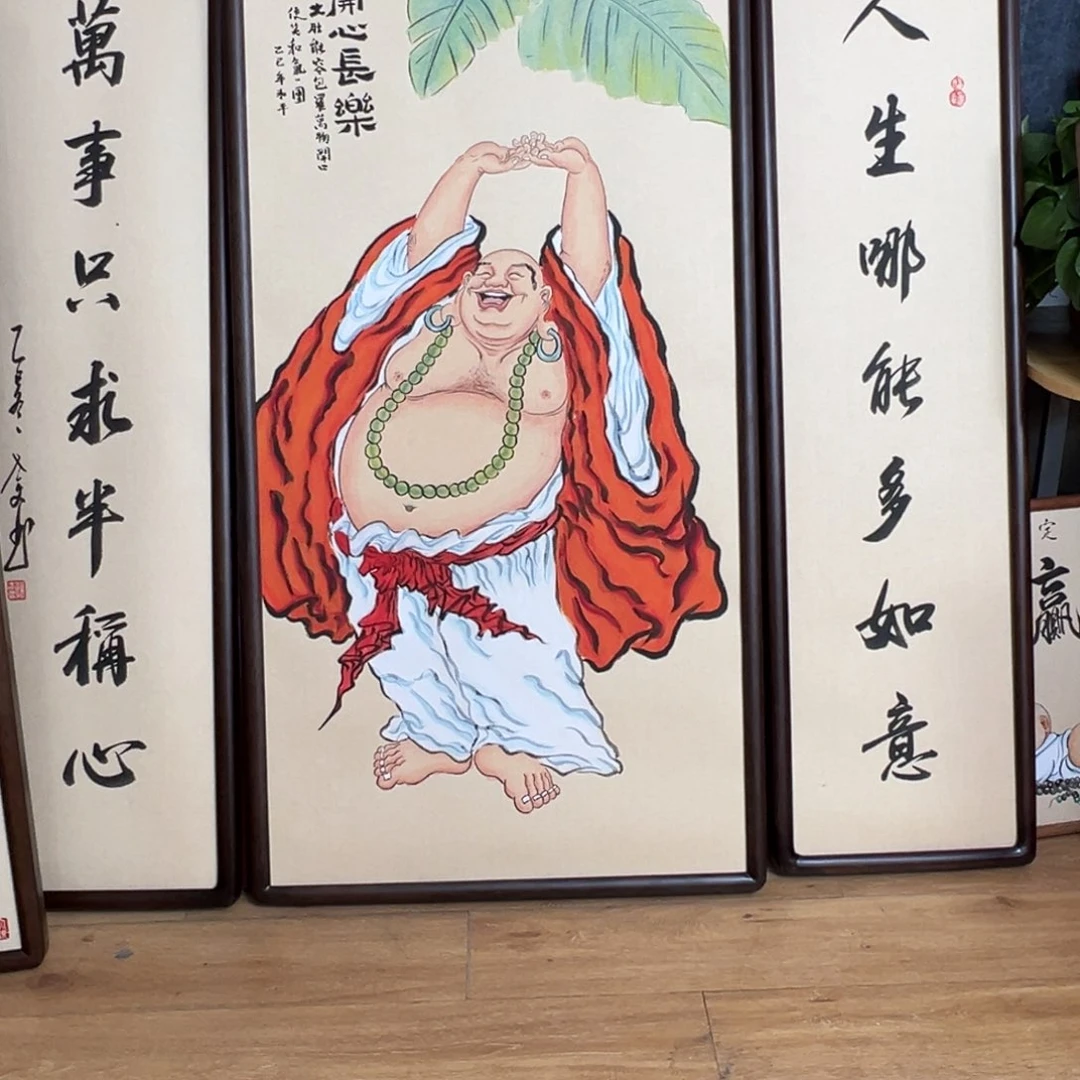 人生哪能多如意
開心長樂
大肚能容包羅萬物開口
便笑和氣一團
乙巳年
萬事只求半稱心
完
贏